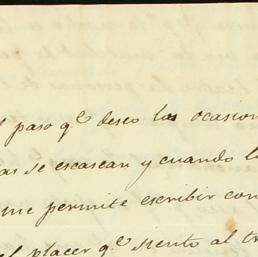 l paso q.e deseo las ocasion
as se escasean y cuando l
me permite escribir con
el placer q.e siento al tr